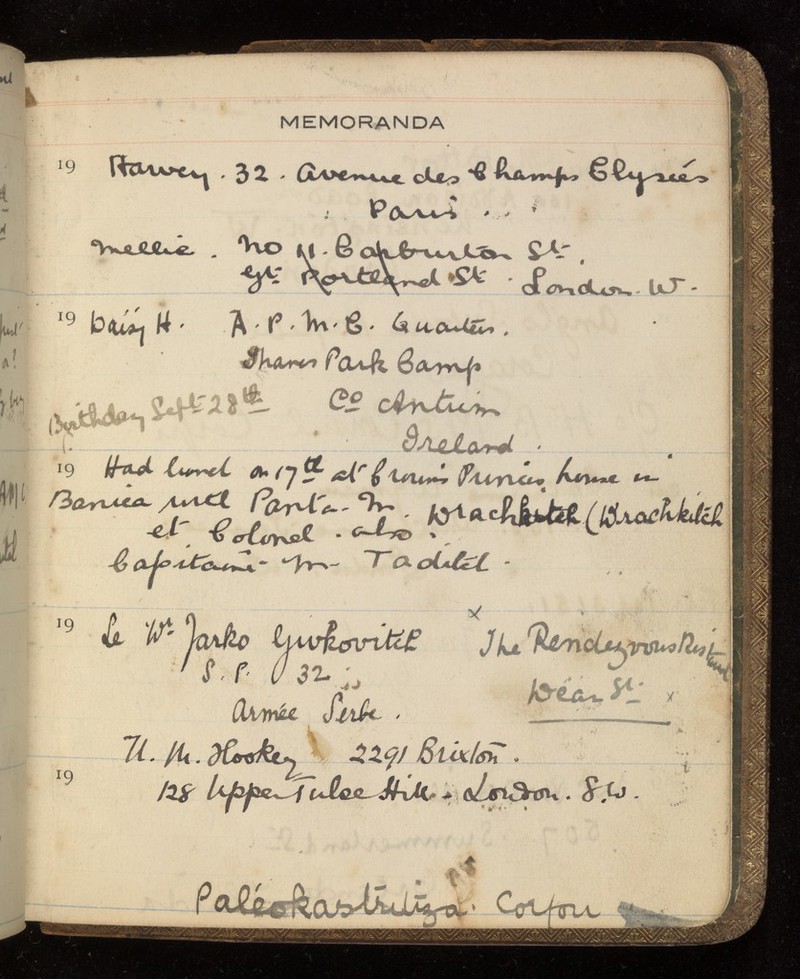 MEMORANDA
19 Harvey . 32 . Avenue des Champs Elysées
Paris . . .
Mellie . No 11 . St.
Gt. Portland St . London . W .
19 Daisy H . A . P . M . C . Quarters .
Park Camp
Birthday Sept 28th Co Antrim
Ireland .
19 Had lunch on 17th at Crown Princes house in
Banica with M .
et Colonel . also .
Capitaine M
19 Le Wt x The Rendezvous
S . P . 32
Dean St . x
Armée Serbe .
Hookey 2291 Brixton .
19
128 Upper Tulse Hill . London . S.W .
Paléokastritza . Corfou